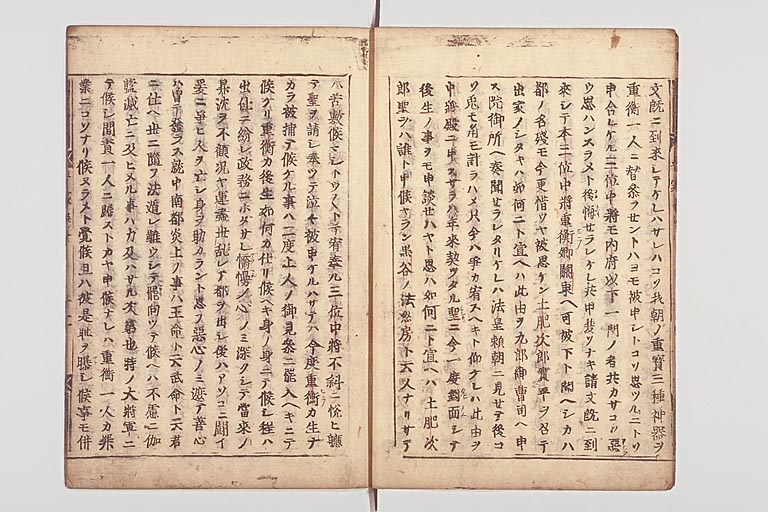 文既ニ到来シテケレハサレハコソ我朝ノ重寶三種神器ヲ
重衡一人ニ替参ラセントハヨモ被申シトコソ思ツルニトソ
申合レケル三位中将モ内府以下一門ノ者共カサコソ悪
ウ思ハンスラメト後悔セラレケレ共申甲斐ソナキ請文既ニ到
来シテ本三位中将重衡卿關東ヘ可被下ト聞ヘシカハ
都ノ名残モ今更惜ツヤ被思ケン土肥次郎實平ヲ召テ
出家ノシタキハ如何ニト宣ヘハ此由ヲ九郎御曹司ヘ申
ス院御所ヘ奏聞セラレタリケレハ法皇頼朝ニ見セテ後コ
ソ兎モ角モ計ラハメ只今ハ爭カ宥スヘキト仰ケレハ此由ヲ
中将殿ニ申スサラハ年来契ツタル聖ニ今一度對面シテ
後生ノ事ヲモ申談セハヤト思ハ如何ニト宣ヘハ土肥次
郎聖ヲハ誰ト申候ヤラン黒谷ノ法然房ト云人ナリサテ
ハ苦敷候マシトテ宥奉ル三位中将不斜ニ悦ヒ軈
テ聖ヲ請シ奉ツテ泣々被申ケルハサテハ今度重衡カ生ナ
カラ被捕テ候ケル事ハ二度上人ノ御見参ニ罷入ヘキニテ
候ケリ重衡カ後生如何カ仕リ候ヘキ身ノ身ニテ候シ程ハ
出仕ニ紛レ政務ニホタサレ憍慢ノ心ノミ深クシテ當来ノ
昇沈ヲ不顧況ヤ運盡世乱レテ都ヲ出シ後ハアソコニ闘イ
爰ニ爭ヒ人ヲ亡シ身ヲ助カラント思フ悪心ノミ遮テ善心
ハ曽テ發ラス就中南都炎上ノ事ハ王命ト云武命ト云君
ニ仕ヘ世ニ随フ法遁レ難ウシテ罷向ツテ候ヘハ不慮ニ伽
藍滅亡ニ及ヒヌル事ハ力及ハサル次第也時ノ大将軍ニ
テ候シ間責一人ニ歸ストカヤ申候ナレハ重衡一人カ罪
業ニコソナリ候ヌラメト覚候且ハ彼是耻ヲ曝シ候事モ併